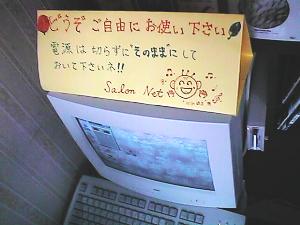 どうぞ ご自由に お使い 下さい
電源は 切らずに"そのままに"して
おいて下さいネ!!
Salon Net